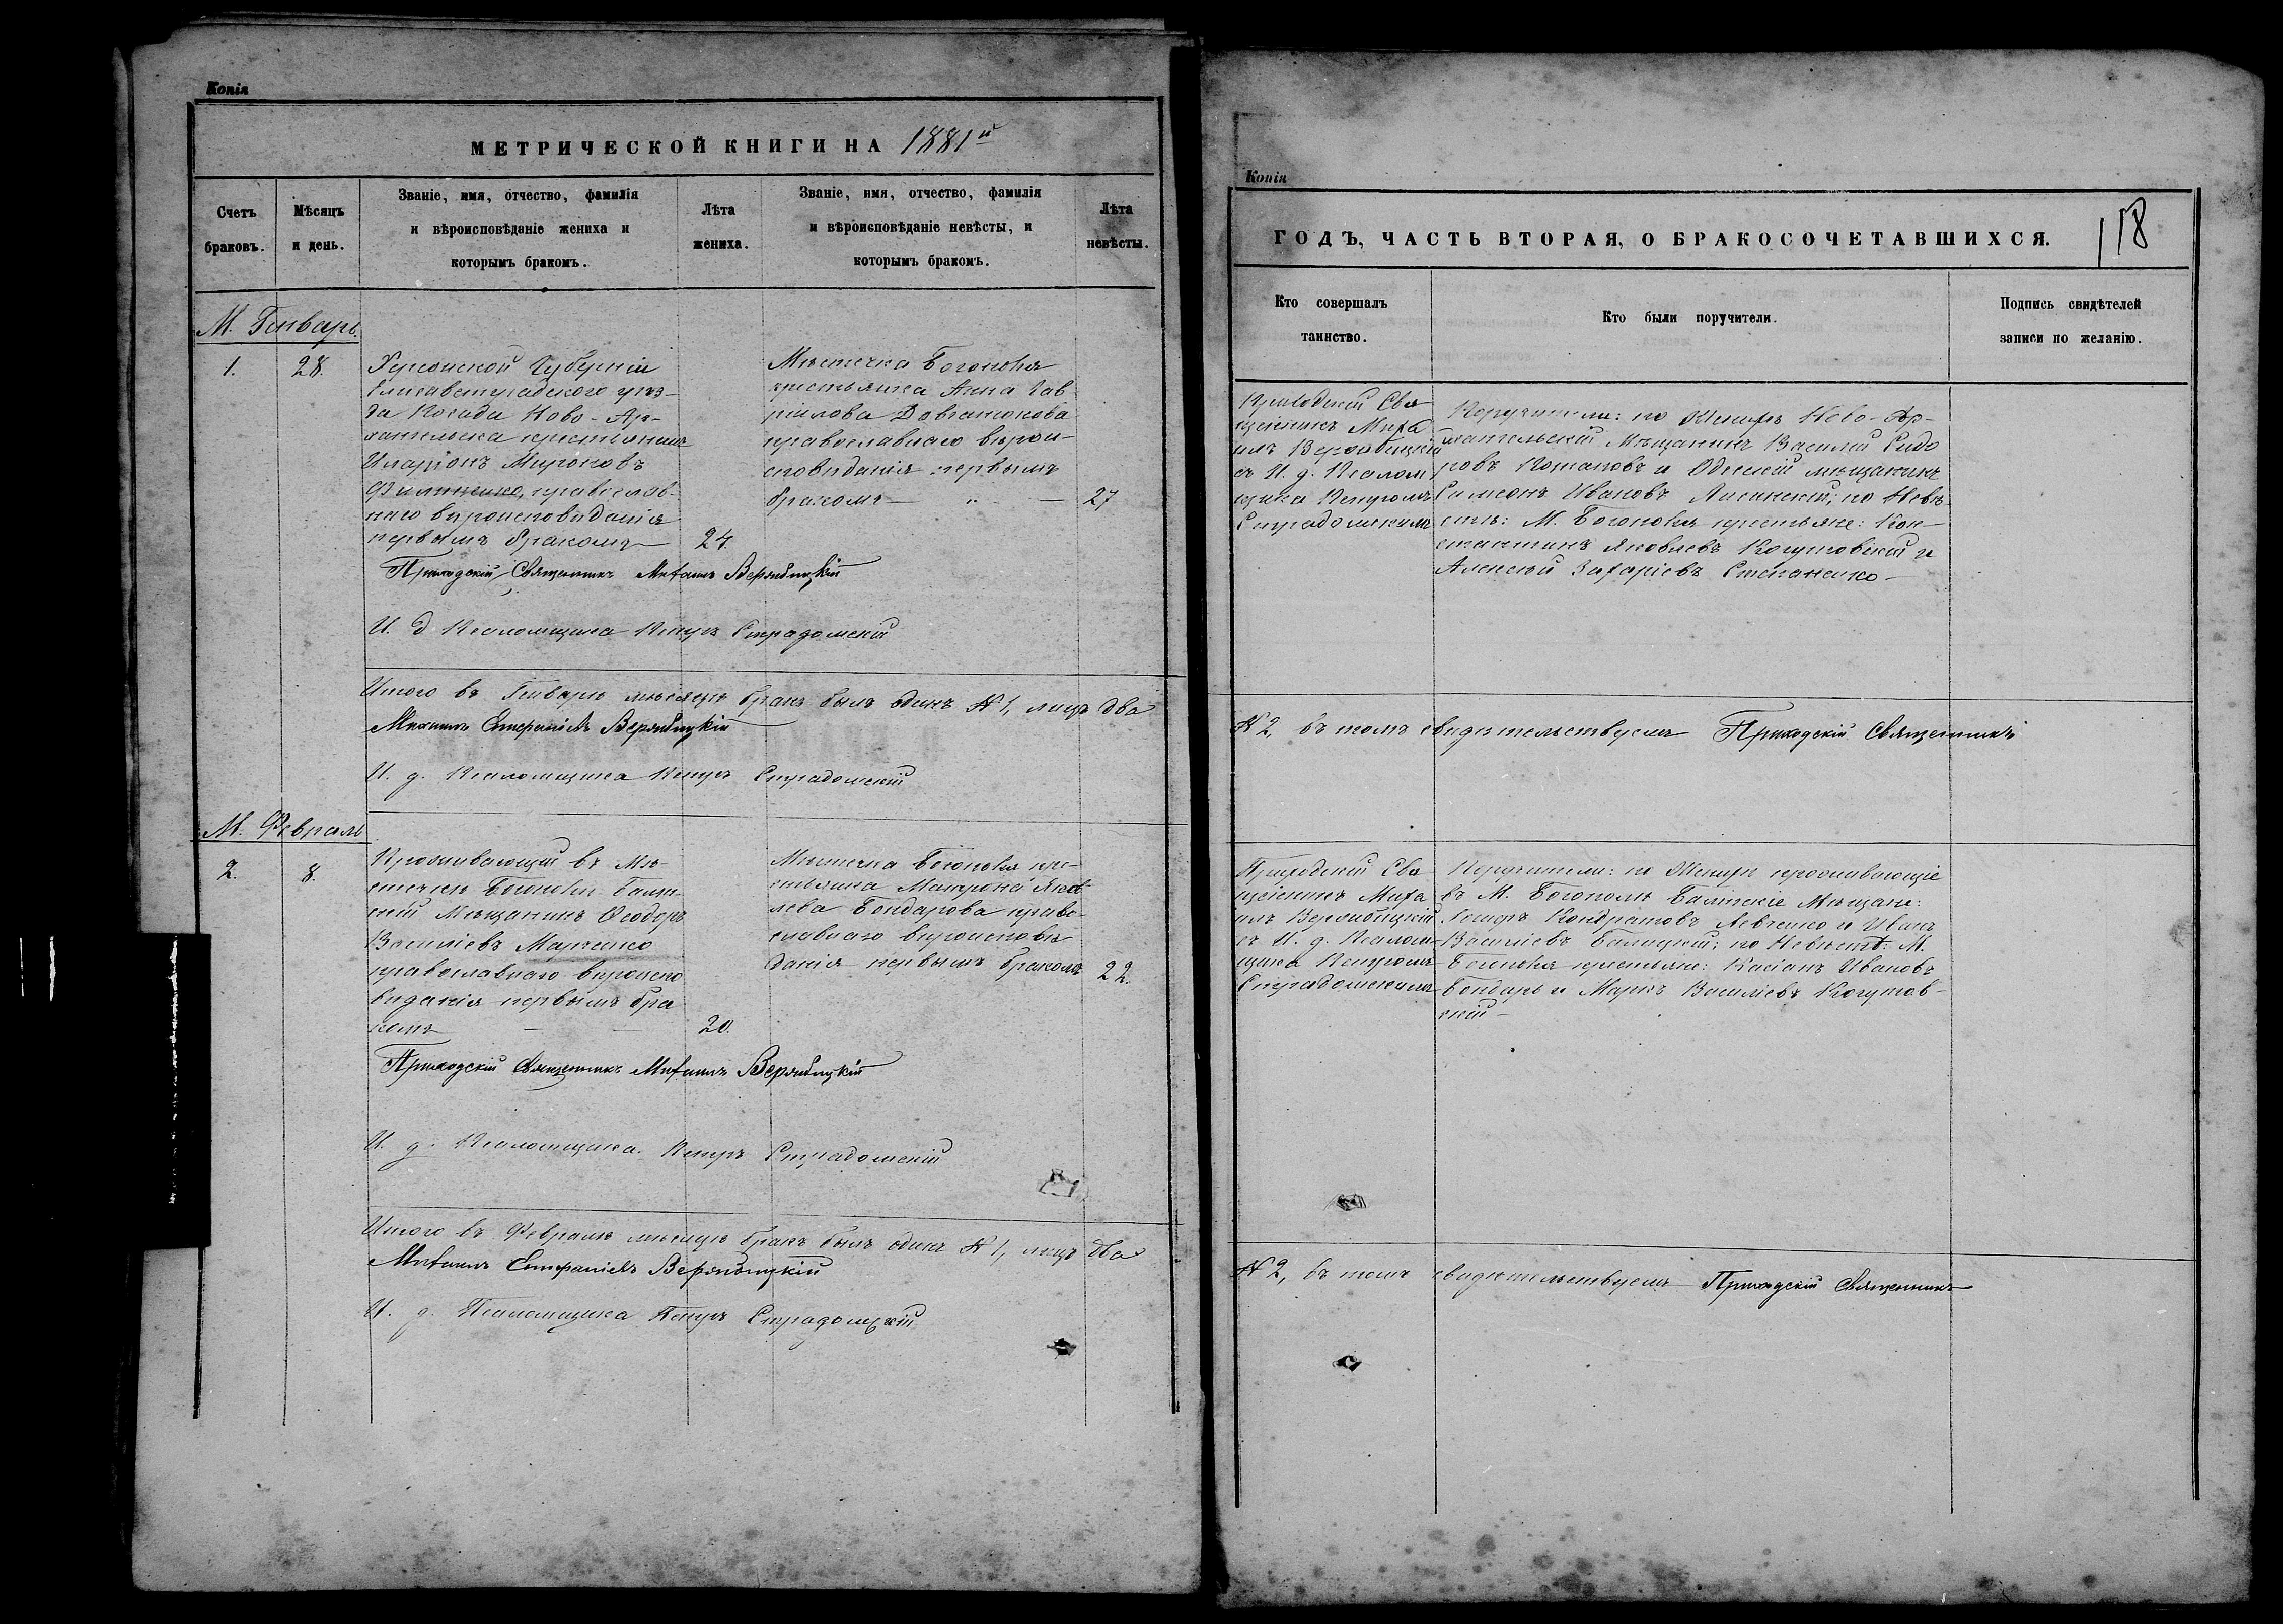 Копія
МЕТРИЧЕСКОЙ КНИГИ НА 1881й
Счетъ браковъ.
Мѣсяцъ и день.
Званіе, имя, отчество, фамилія
и вѣроисповѣданіе жениха и
которымъ бракомъ.
Лѣта жениха.
Званіе, имя, отчество, фамилія
и вѣроисповѣданіе невѣсты, и
которымъ бракомъ.
Лѣта невѣсты.
М. Генварь.
1.
28.
Херсонской Губерніи
Елисаветградского уѣз-
да Посада Ново-Ар-
хангельска крестьянинъ
Иларіонъ Мироновъ
Филипенко, православ-
наго вѣроисповѣданія
первымъ бракомъ
24.
Мѣстечка Богополя
крестьянка Анна Гав-
ріилова Довганюкова
православнаго вѣрои-
сповѣданія первымъ
бракомъ
27
Приходскій Священникъ Михаилъ
И. д. Псаломщика Петръ Страдомскій
Итого въ Генварѣ мѣсяцѣ бракъ былъ одинъ № 1, лицъ два
Михаилъ Стефаніевъ
И. д. Псаломщика Петръ Страдомскій
М. Февраль
2.
8.
Проживающій въ Мѣ-
стечкѣ Богополи Балт-
скій Мѣщанинъ Ѳеодоръ
Василіевъ Марченко
православнаго вѣроиспо
вѣданія первымъ бра
комъ
20.
Мѣстечка Богополя кре-
стьянка Матрона Яков
лева Бондарова право-
славнаго вѣроисповѣ
данія первымъ бракомъ
22.
Приходскій Священникъ Михаилъ
И. д. Псаломщика Петръ Страдомскій
Итого въ Февралѣ мѣсяцѣ бракъ былъ одинъ № 1, лицъ два
Михаилъ Стефаніевъ
И. д. Псаломщика Петръ Страдомскій
Копія
ГОДЪ, ЧАСТЬ ВТОРАЯ, О БРАКОСОЧЕТАВШИХСЯ.
118
Кто совершалъ
таинство.
Кто были поручители.
Подпись свидѣтелей
записи по желанію.
Приходскій Свя
щенникъ Миха
илъ
съ И. д. Псалом
щика Петромъ
Страдомскимъ
Поручители: по Женихѣ Ново-Ар-
хангельскій Мѣщанинъ Василій Сидо
ровъ и Одесскій мѣщанинъ
Симеонъ Ивановъ Лисинскій; по Невѣ-
стѣ: М. Богополя крестьяне: Кон-
стантинъ Яковлевъ Когутовскій и
Алексѣй Захаріевъ Степаненко
№ 2, въ томъ свидѣтельствуемъ Приходскій Священникъ
Приходскій Свя
щенникъ Миха
илъ
съ И. д. Псалом-
щика Петромъ
Страдомскимъ
Поручители: по Женихѣ проживающіе
въ М. Богополѣ Балтскіе Мѣщане:
Кондратовъ Левченко и Иванъ
Василіевъ; по Невѣстѣ: М.
Богополя крестьяне: Касіанъ Ивановъ
Бондарь и Маркъ Василіевъ Когутов-
скій
№ 2, въ томъ свидѣтельствуемъ Приходскій Священникъ